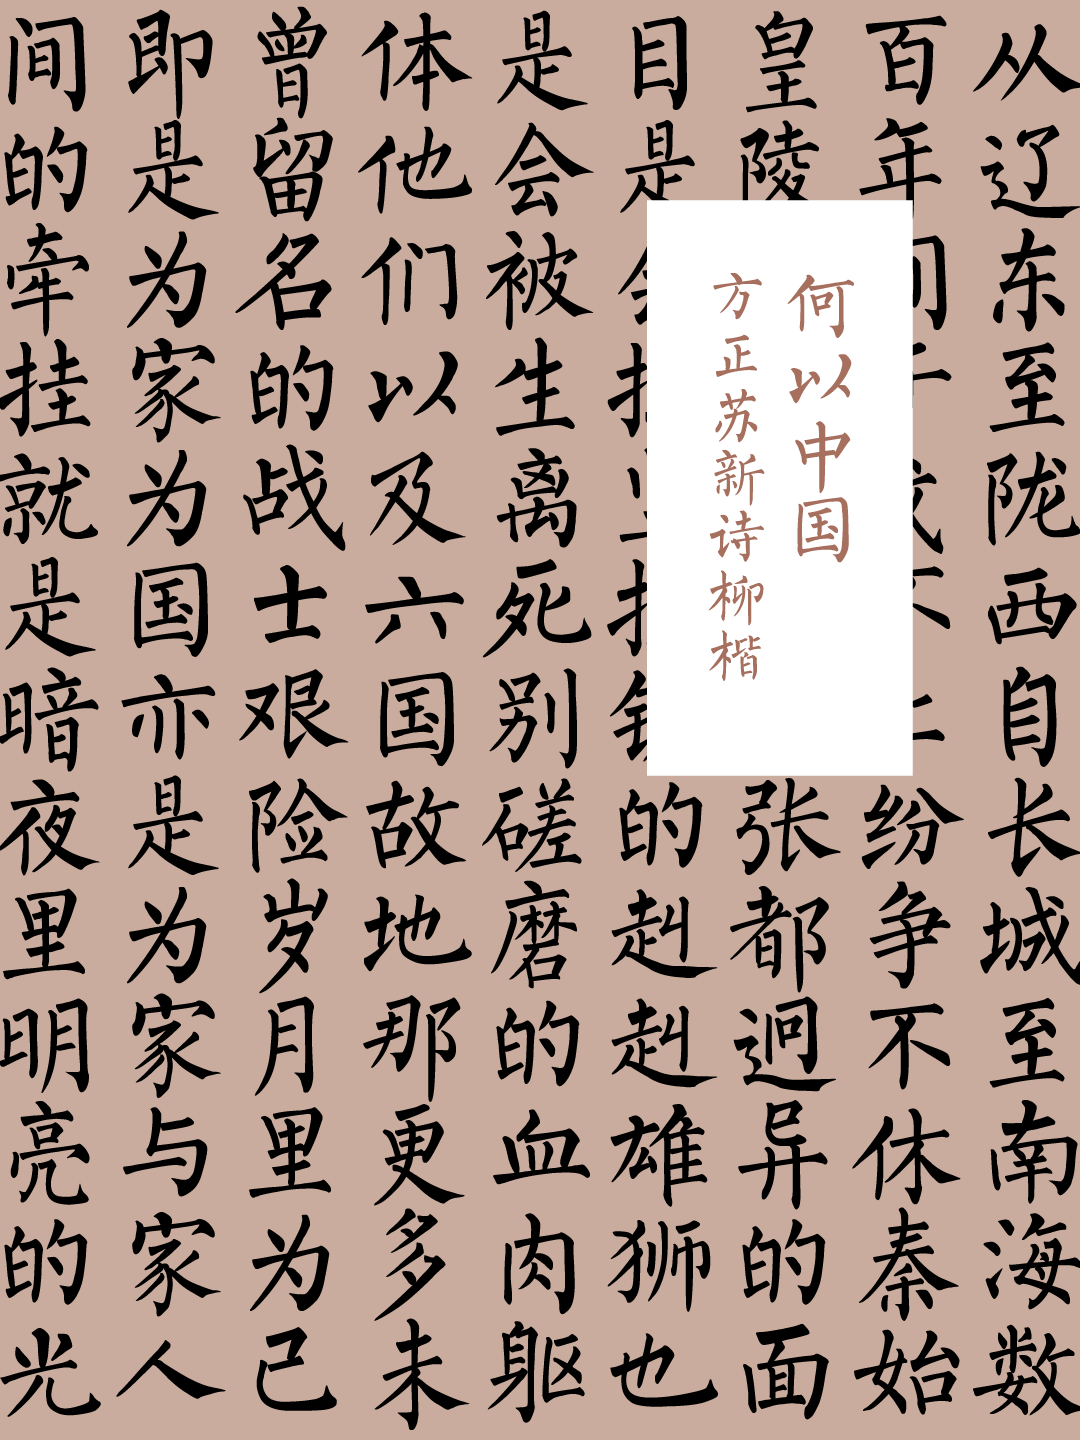 从辽东至陇西自长城至南海数
百年 纷争不休秦始
皇陵 张都迥异的面
目是 的赳赳雄狮也
是会被生离死别磋磨的血肉躯
体他们以及六国故地那更多未
曾留名的战士艰险岁月里为己
即是为家为国亦是为家与家人
间的牵挂就是暗夜里明亮的光
何以中国
方正苏新诗柳楷